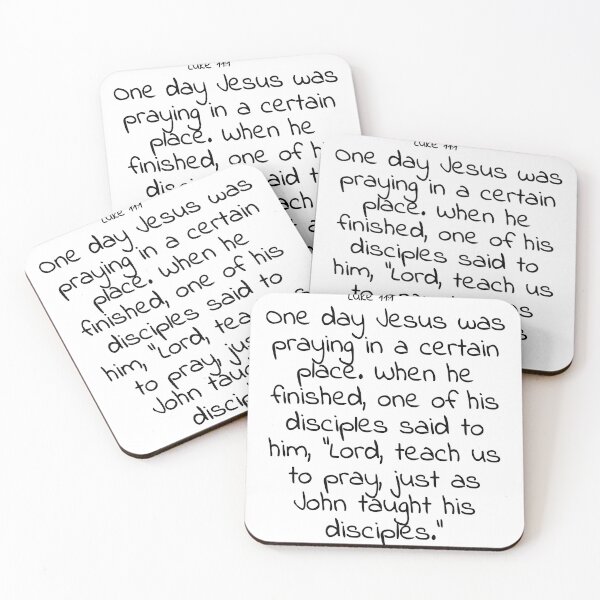 Luke 11:1
One day Jesus was
praying in a certain
place. When he
finished, one of his
Luke 11:1
One day Jesus was
praying in a certain
place. When he
finished, one of his
disciples said to
him, "Lord, teach us
Luke 11:1
One day Jesus was
praying in a certain
place. When he
finished, one of his
disciples said to
him, "Lord,
to pray,
John taught
Luke 11:1
One day Jesus was
praying in a certain
place. When he
finished, one of his
disciples said to
him, "Lord, teach us
to pray, just as
John taught his
disciples."